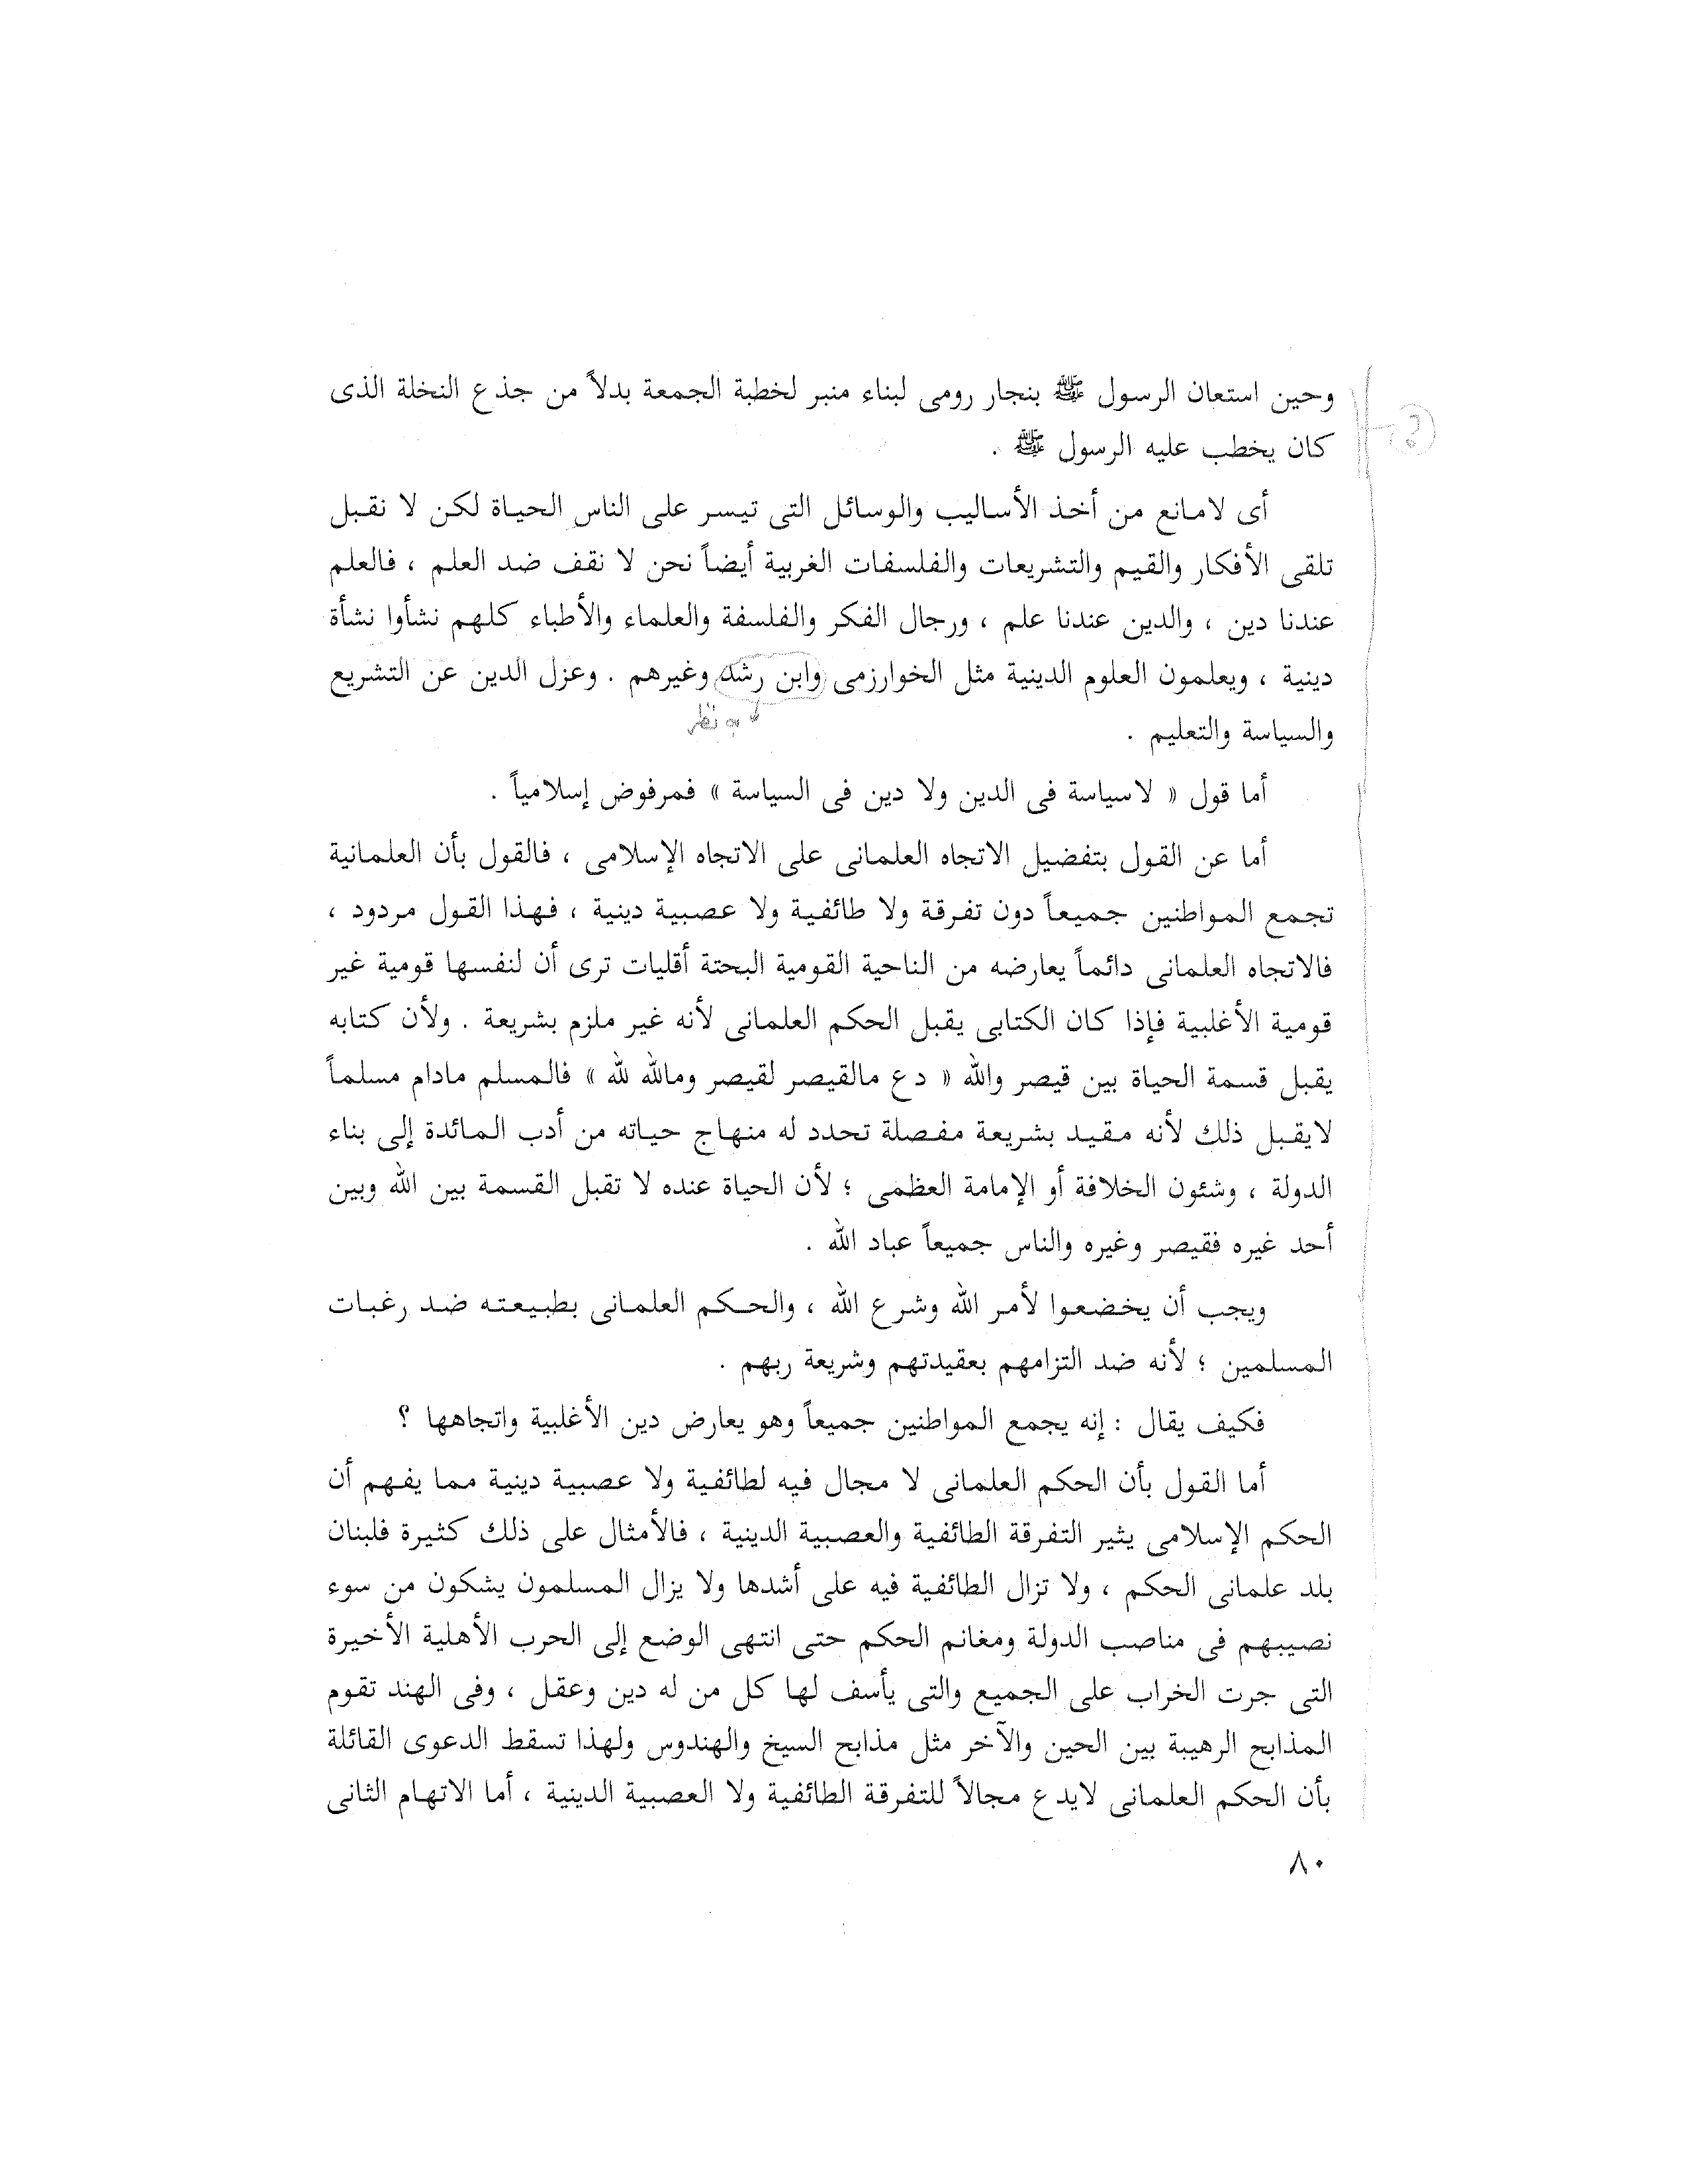 وحين استعان الرسول ﷺ بنجار رومى لبناء منبر لخطبة الجمعة بدلاً من جذع النخلة الذى
كان يخطب عليه الرسول ﷺ .
أى لامانع من أخذ الأساليب والوسائل التى تيسر على الناس الحياة لكن لا نقبل
تلقى الأفكار والقيم والتشريعات والفلسفات الغربية أيضاً نحن لا نقف ضد العلم ، فالعلم
عندنا دين ، والدين عندنا علم ، ورجال الفكر والفلسفة والعلماء والأطباء كلهم نشأوا نشأة
دينية ، ويعلمون العلوم الدينية مثل الخوارزمى وابن رشد وغيرهم . وعزل الدين عن التشريع
نظر
والسياسة والتعليم .
أما قول « لاسياسة فى الدين ولا دين فى السياسة » فمرفوض إسلامياً .
أما عن القول بتفضيل الاتجاه العلمانى على الاتجاه الإسلامى ، فالقول بأن العلمانية
تجمع المواطنين جميعاً دون تفرقة ولا طائفية ولا عصبية دينية ، فهذا القول مردود ،
فالاتجاه العلمانى دائماً يعارضه من الناحية القومية البحتة أقليات ترى أن لنفسها قومية غير
قومية الأغلبية فإذا كان الكتابى يقبل الحكم العلمانى لأنه غير ملزم بشريعة . ولأن كتابه
يقبل قسمة الحياة بين قيصر والله « دع مالقيصر لقيصر ومالله لله » فالمسلم مادام مسلماً
لايقبل ذلك لأنه مقيد بشريعة مفصلة تحدد له منهاج حياته من أدب المائدة إلى بناء
الدولة ، وشئون الخلافة أو الإمامة العظمى ؛ لأن الحياة عنده لا تقبل القسمة بين الله وبين
أحد غيره فقيصر وغيره والناس جميعاً عباد الله .
ويجب أن يخضعوا لأمر الله وشرع الله ، والحكم العلمانى بطبيعته ضد رغبات
المسلمين ؛ لأنه ضد التزامهم بعقيدتهم وشريعة ربهم .
فكيف يقال : إنه يجمع المواطنين جميعاً وهو يعارض دين الأغلبية واتجاهها ؟
أما القول بأن الحكم العلمانى لا مجال فيه لطائفية ولا عصبية دينية مما يفهم أن
الحكم الإسلامى يثير التفرقة الطائفية والعصبية الدينية ، فالأمثال على ذلك كثيرة فلبنان
بلد علمانى الحكم ، ولا تزال الطائفية فيه على أشدها ولا يزال المسلمون يشكون من سوء
نصيبهم فى مناصب الدولة ومغانم الحكم حتى انتهى الوضع إلى الحرب الأهلية الأخيرة
التى جرت الخراب على الجميع والتى يأسف لها كل من له دين وعقل ، وفى الهند تقوم
المذابح الرهيبة بين الحين والآخر مثل مذابح السيخ والهندوس ولهذا تسقط الدعوى القائلة
بأن الحكم العلمانى لايدع مجالاً للتفرقة الطائفية ولا العصبية الدينية ، أما الاتهام الثانى
٨٠